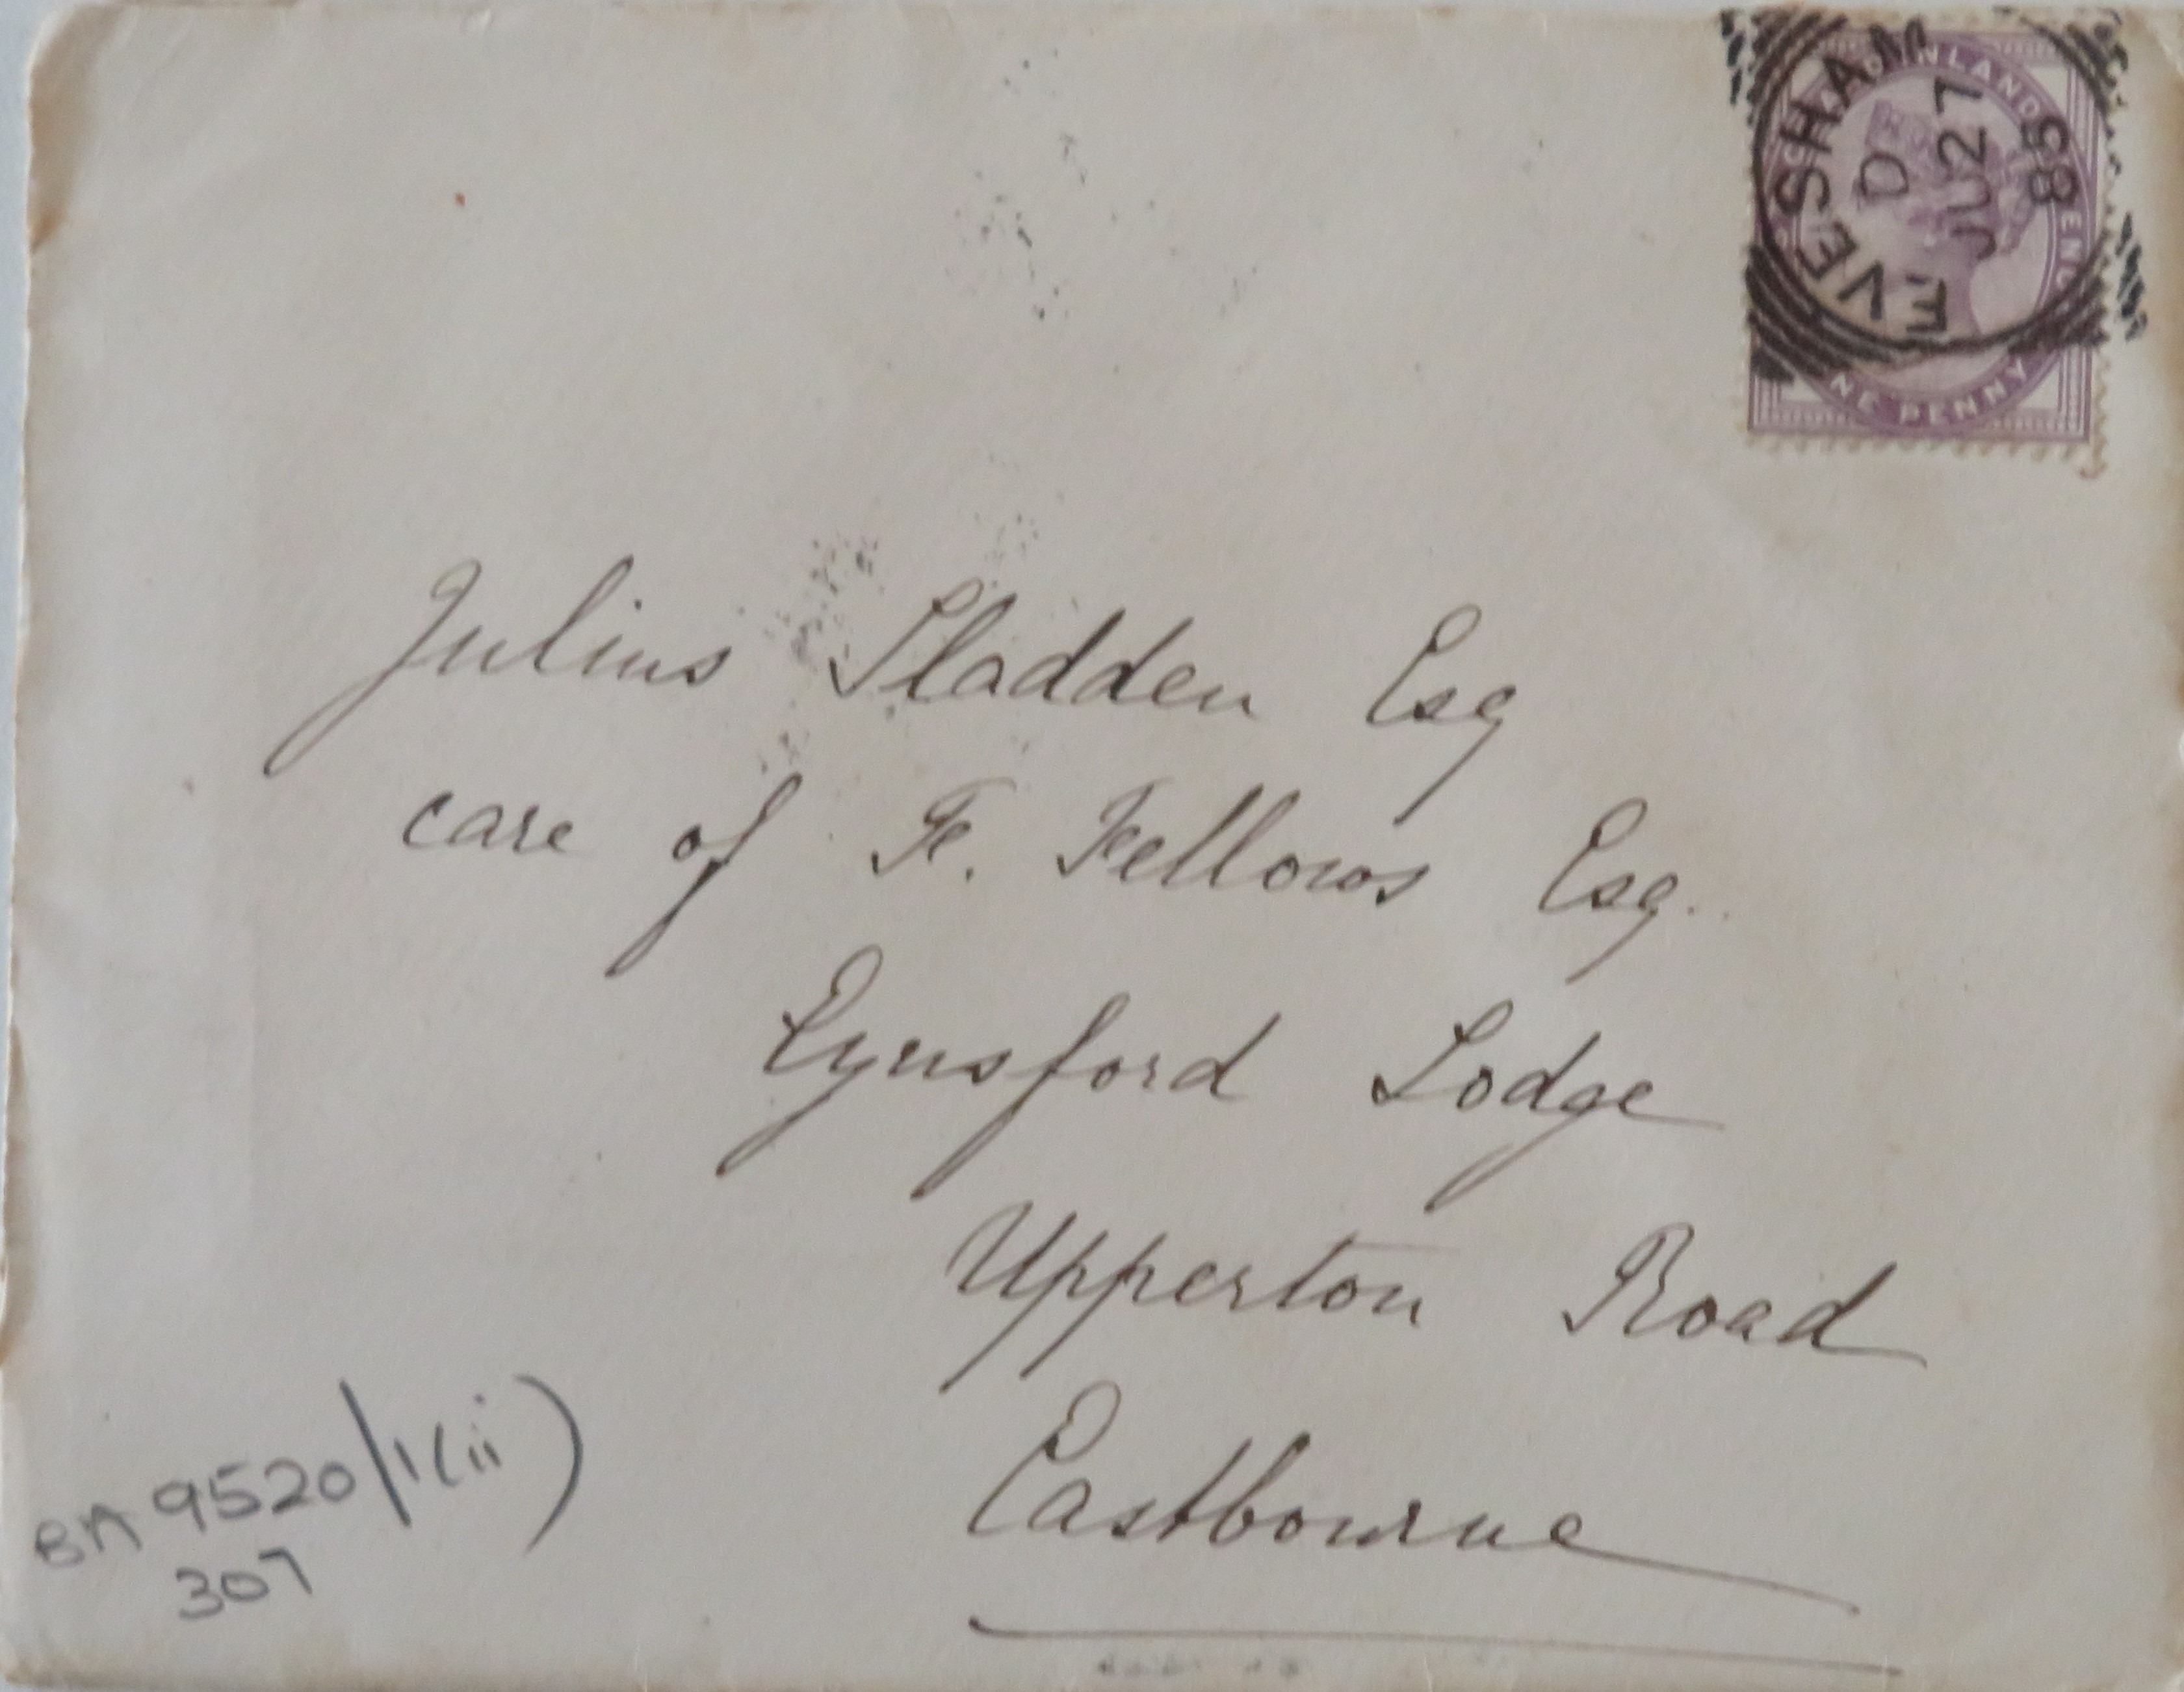 EVESHAM
D
JU 27
88
INLAND
ONE PENNY
Julius Sladden Esq
care of F. Fellows Esq.
Eynsford Lodge
Upperton Road
Eastbourne
BM 9520/1(ii)
307